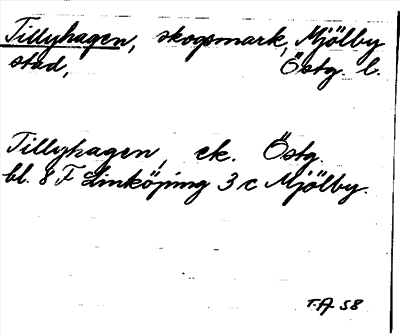 Tillyhagen, skogsmark, Mjölby
stad, Östg. l.
Tillyhagen, ek. Östg.
bl. 8 F Linköping 3 c Mjölby.
T.A. 58